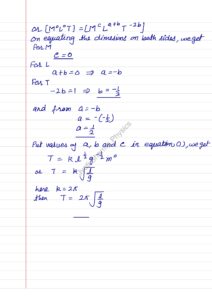 or [M⁰L⁰T] = [Mᶜ L^{a+b} T^{-2b}]
On equating the dimesions on both sides, we get
For M
c = 0
For L
a+b = 0 ⇒ a = -b
For T
-2b = 1 ⇒ b = -1/2
and from a = -b
a = -(-1/2)
a = 1/2
Put values of a, b and c in equation (1), we get
T = k l^{1/2} g^{-1/2} m⁰
or T = k √(l/g)
here k = 2π
then T = 2π √(l/g)